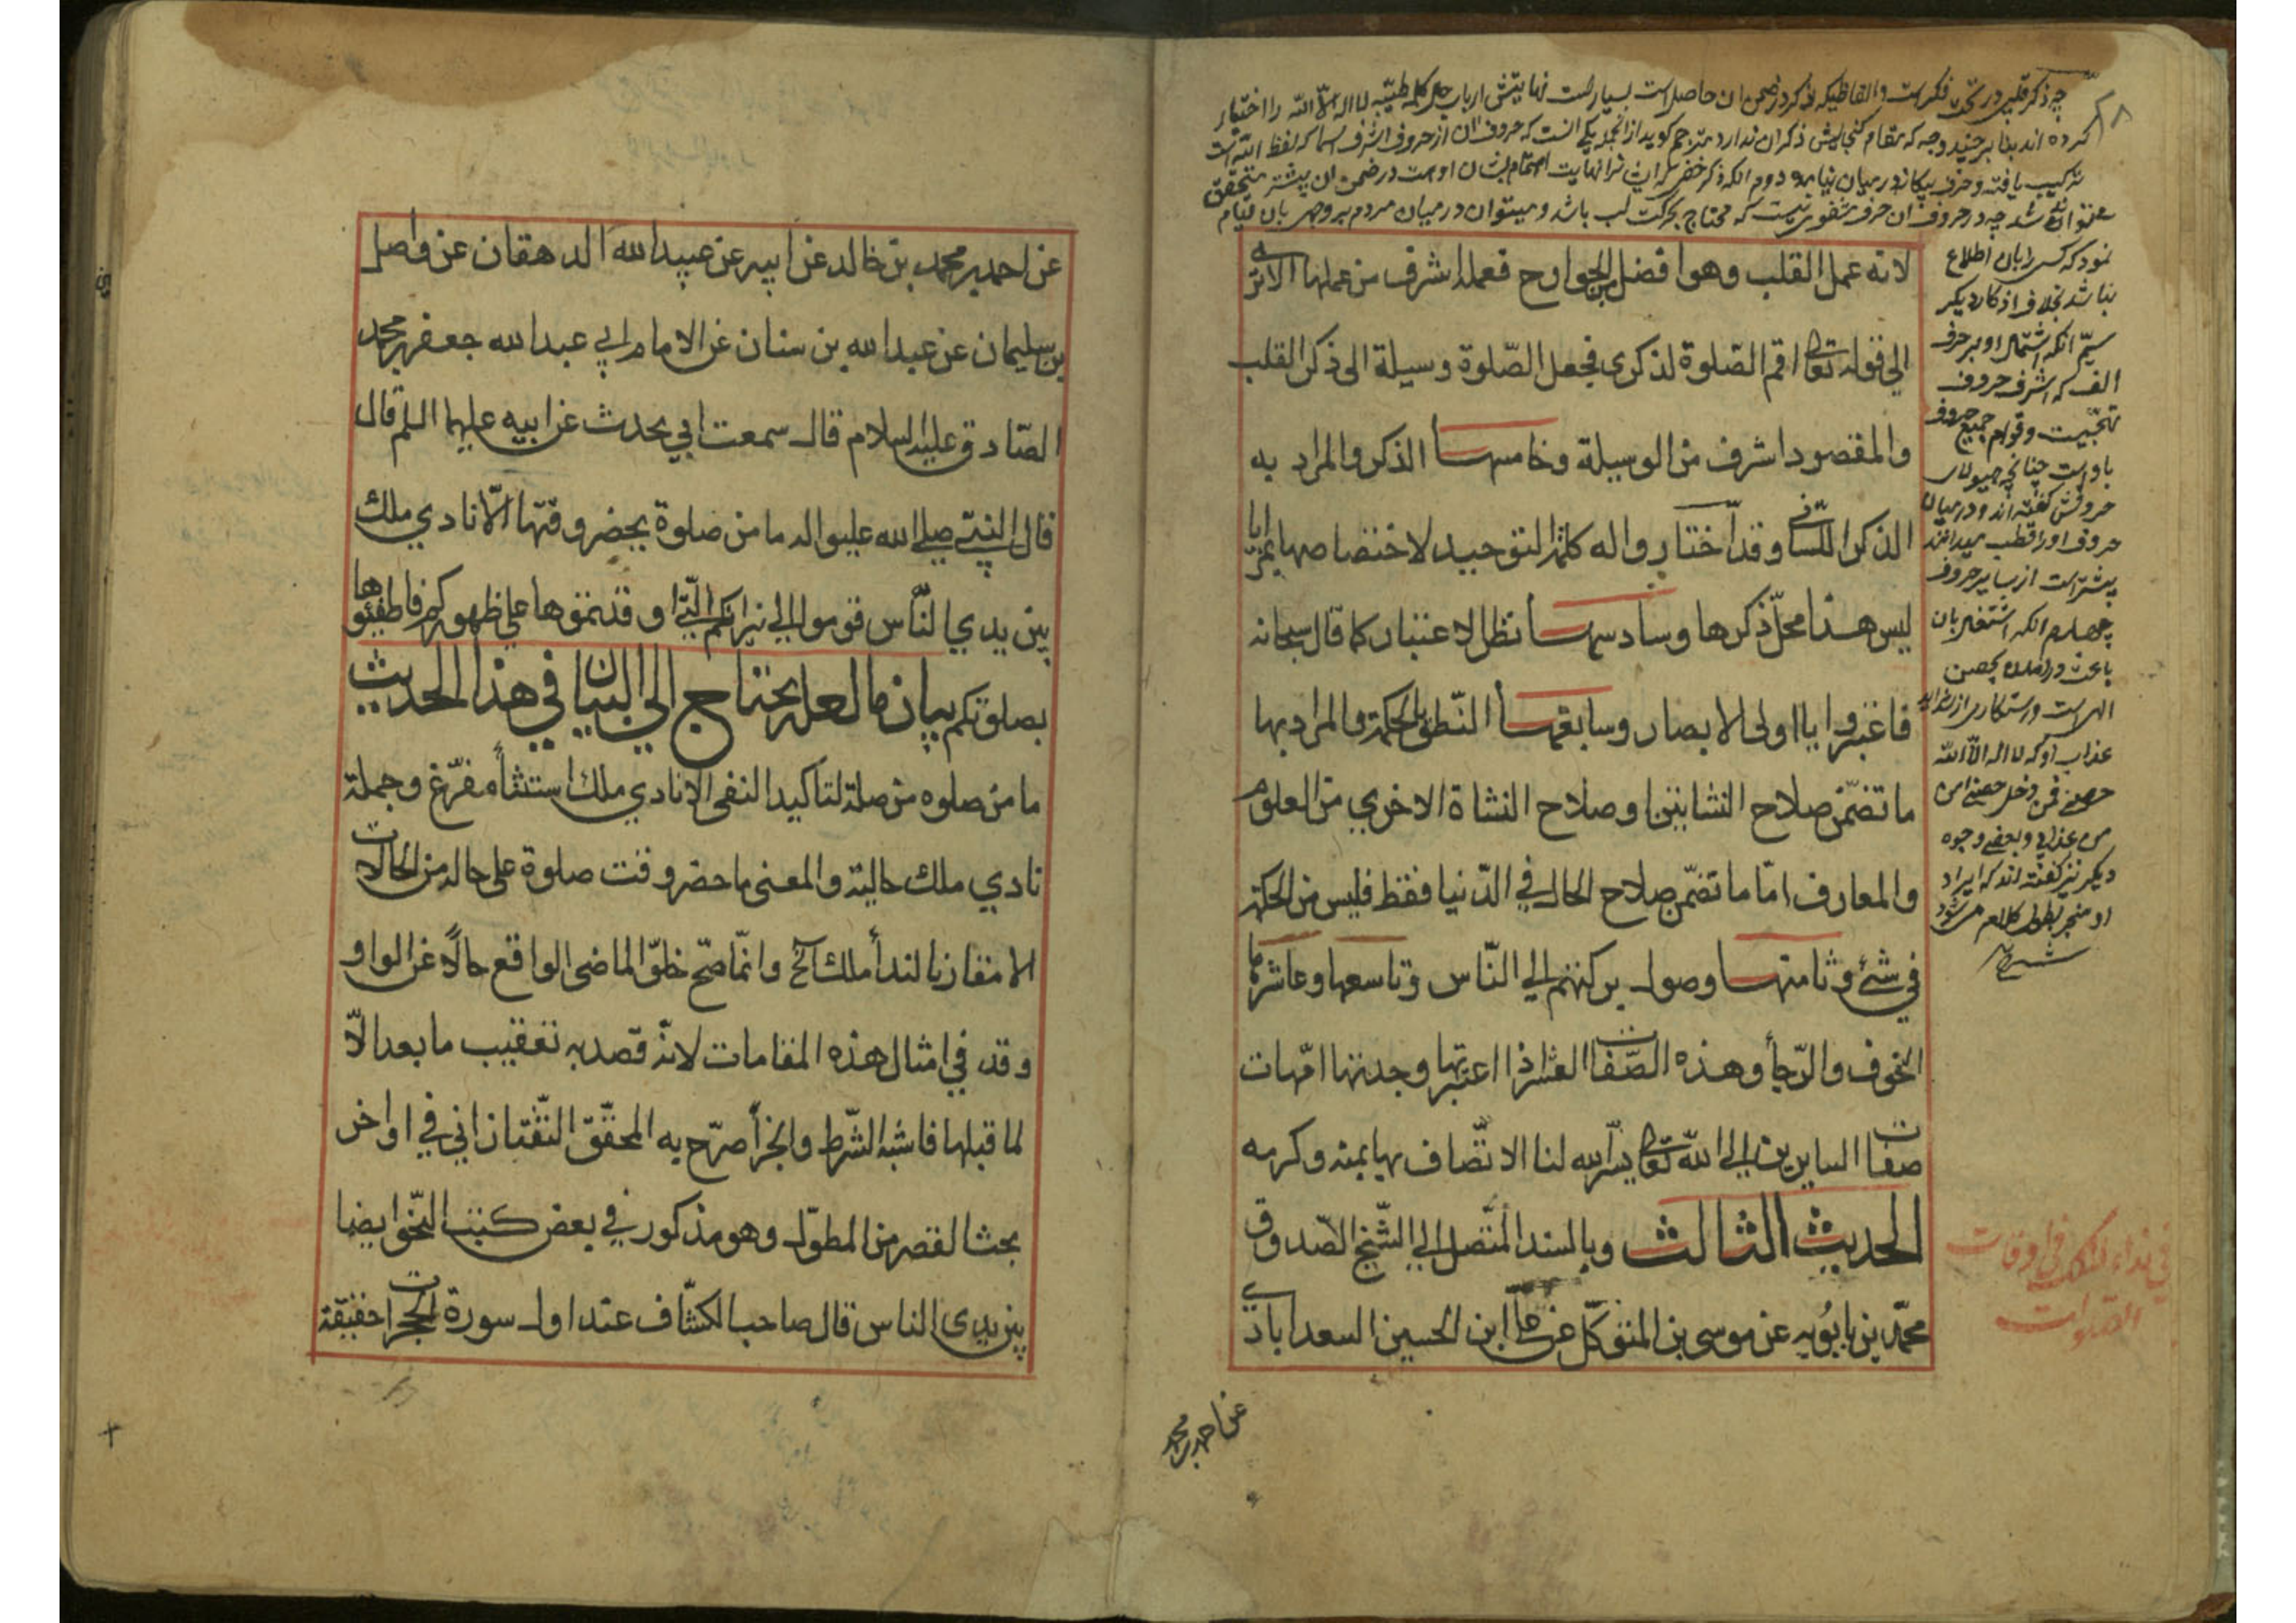 چه ذکر قلبی در تحت فکرست و الفاظیکه ذکر در ضمن ان حاصل است بسیارست نهایتش ارباب حال کلمه طیبه لا اله الا الله را اختیار
کرده اند بنا بر چند وجه که مقام گنجایش ذکر ان ندارد مترجم کوید از انجمله یکی انست که حروف ان از حروف اشرف اسما که لفظ الله است
ترکیب یافته و حرف بیکانه در میان نیامده دوم انکه ذکر خفی که ان را نهایت اهتمام بشان اوست در ضمن ان بیشتر متحقق
میتواند شد چه در حروف ان حرف شفوی نیست که محتاج بحرکت لب باشد و میتوان در میان مردم بر وجهی بان قیام
نمود که کسی را بان اطلاع
نباشد بخلاف اذکار دیکر
سیّم انکه اشتمال او بر حرف
الف که اشرف حروف
تهجیست و قوام جمیع حروف
باوست چنانچه هیولای
حروفش کفته اند و در میان
حروف او را قطب میدانند
بیشترست از سایر حروف
چهارم انکه اشتغال بان
باعث در امدن بحصن
الهی است و رستکاری از شداید
عذاب او که لا اله الا الله
حصنی فمن دخل حصنی امن
من عذابی و بعضی وجوه
دیکر نیز کفته اند که ایراد
او منجر بطول کلام میشود
لانه عمل القلب وهو افضل من الجوارح فعمله اشرف من عملها الا ترى
الى قوله تعالى اقم الصّلوة لذكرى فجعل الصّلوة وسيلة الى ذكر القلب
والمقصود اشرف من الوسيلة وخامسها الذكر والمراد به
الذكر اللّسانى وقد اختار واله كلمة التوحيد لاختصاصها بمزايا
ليس هذا محلّ ذكرها وسادسها نظر الاعتبار كما قال سبحانه
فاعتبروا يا اولى الابصار وسابعها النّطق بالحكمة والمراد بها
ما تضمّن صلاح النشاتين او صلاح النشاة الاخرى من العلوم
والمعارف امّا ما تضمّن صلاح الحال في الدّنيا فقط فليس من الحكمة
في شئ وثامنها وصول بركتهم الي النّاس وتاسعها وعاشرها
الخوف والرّجأ وهذه الصّفات العشر اذا اعتبرتها وجدتها امّهات
صفات السايرين الي الله تعالى يسّر الله لنا الاتّصاف بها بمنه وكرمه
الحديث الثالث وبالسند المتّصل الي الشّيخ الصّدوق
محمّد بن بابُويه عن موسى بن المتوكّل عن علىّ ابن الحسين السعدابادي
في نداء الملك في اوقات
الصّلوات
عن احمد بن محمد
عن احمد بن محمد بن خالد عن ابيه عن عبيد الله الدهقان عن واصل
بن سليمان عن عبد الله بن سنان عن الامام ابي عبد الله جعفر بن محمد
الصّادق عليه السلام قال سمعت ابي يحدث عن ابيه عليهما السلم قال
قال النبيّ صلي الله عليه واله ما من صلوة يحضر وقتها الّا نادي ملك
بين يدي النّاس قوموا الي نيرانكم الّتي اوقدتموها علي ظهوركم فاطفئوها
بصلوتكم بيان ما لعله يحتاج الي البيان في هذا الحديث
ما من صلوه من صلة لتاكيد النفى الا نادي ملك استثنأ مفرّغ وجملة
نادي ملك حالية والمعنى ما حضر وقت صلوة على حالة من الحالات
الا مقارنا لندأ ملك آلخ وانّما صحّ خلوّ الماضى الواقع حالاً عن الواو
وقد في امثال هذه المقامات لانّه قصد به تعقيب ما بعد الاّ
لما قبلها فاشبه الشّرط والجزأ صرّح به المحقّق التّفتازاني في اواخر
بحث القصر من المطوّل وهو مذكور في بعض كتب النّحو ايضا
بين يدى الناس قال صاحب الكشّاف عند اول سورة الحجرات حقيقة